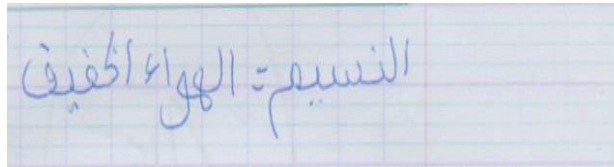 النسيم = الهواء الخفيف